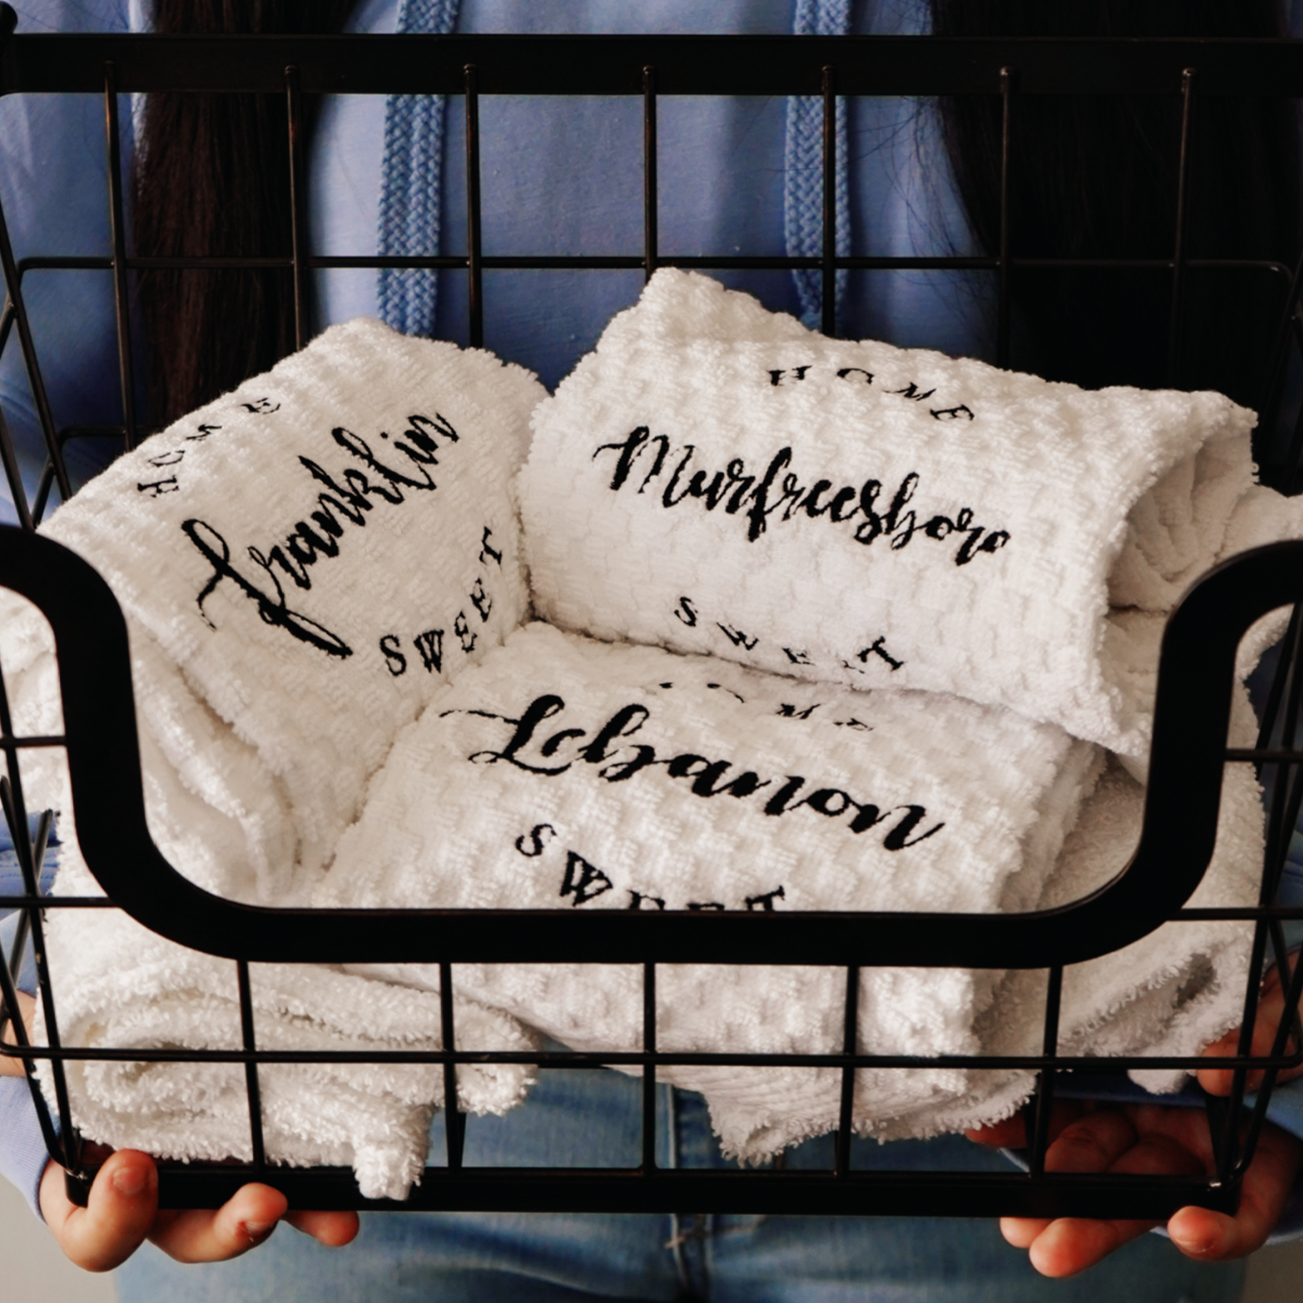 HOME
Franklin
SWEET
HOME
Murfreesboro
SWEET
HOME
Lebanon
SWEET